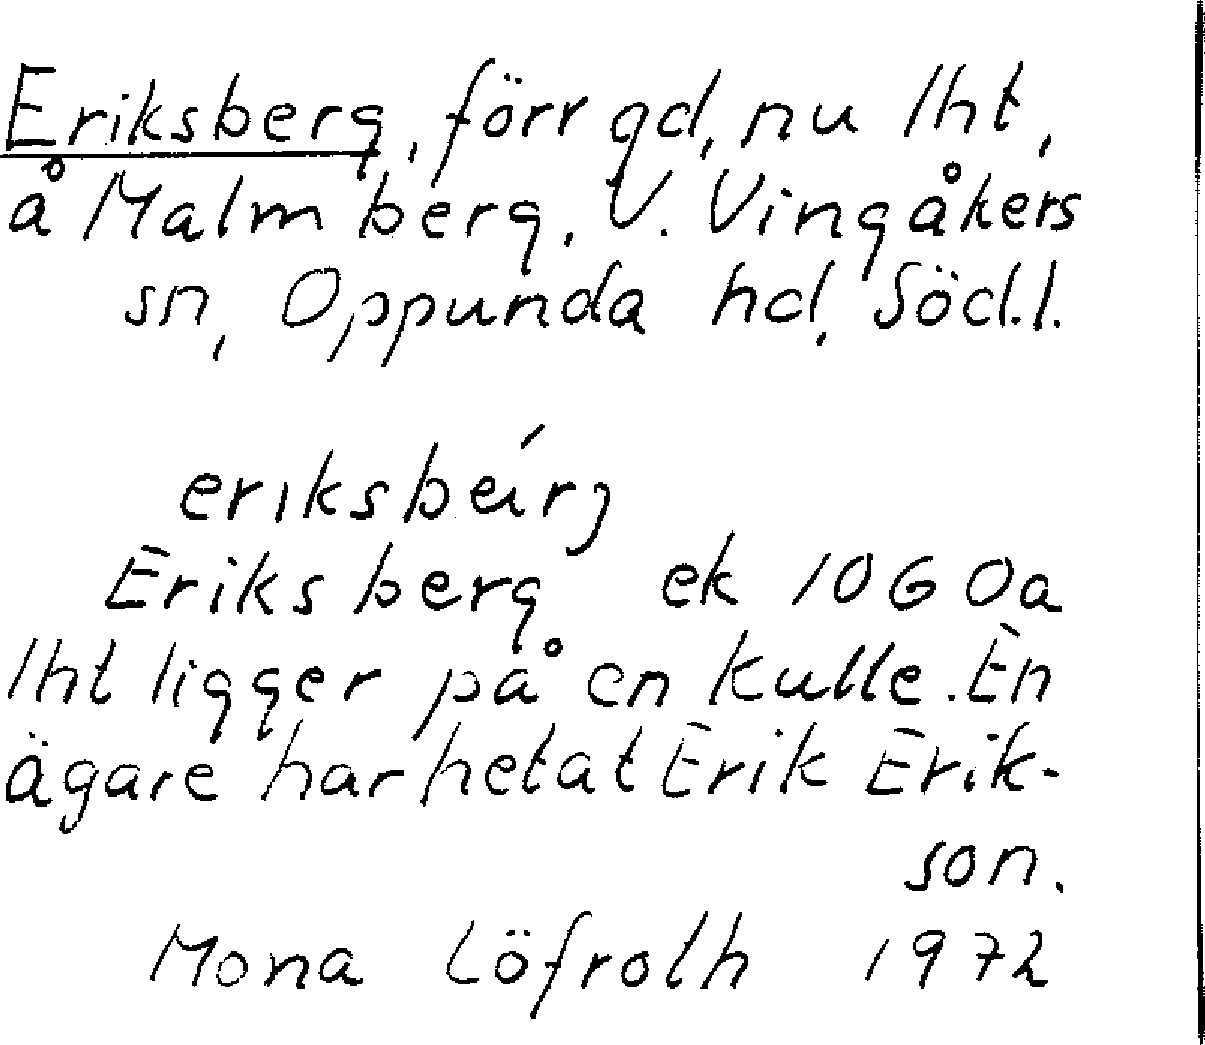 Eriksberg, förr gd, nu lht,
å Malmberg, V. Vingåkers
sn, Oppunda hd, Södl.
eriksbæ̀rj
Eriksberg ek 10G 0a
lht ligger på en kulle. En
ägare har hetat Erik Erik-
son.
Mona Löfroth 1972